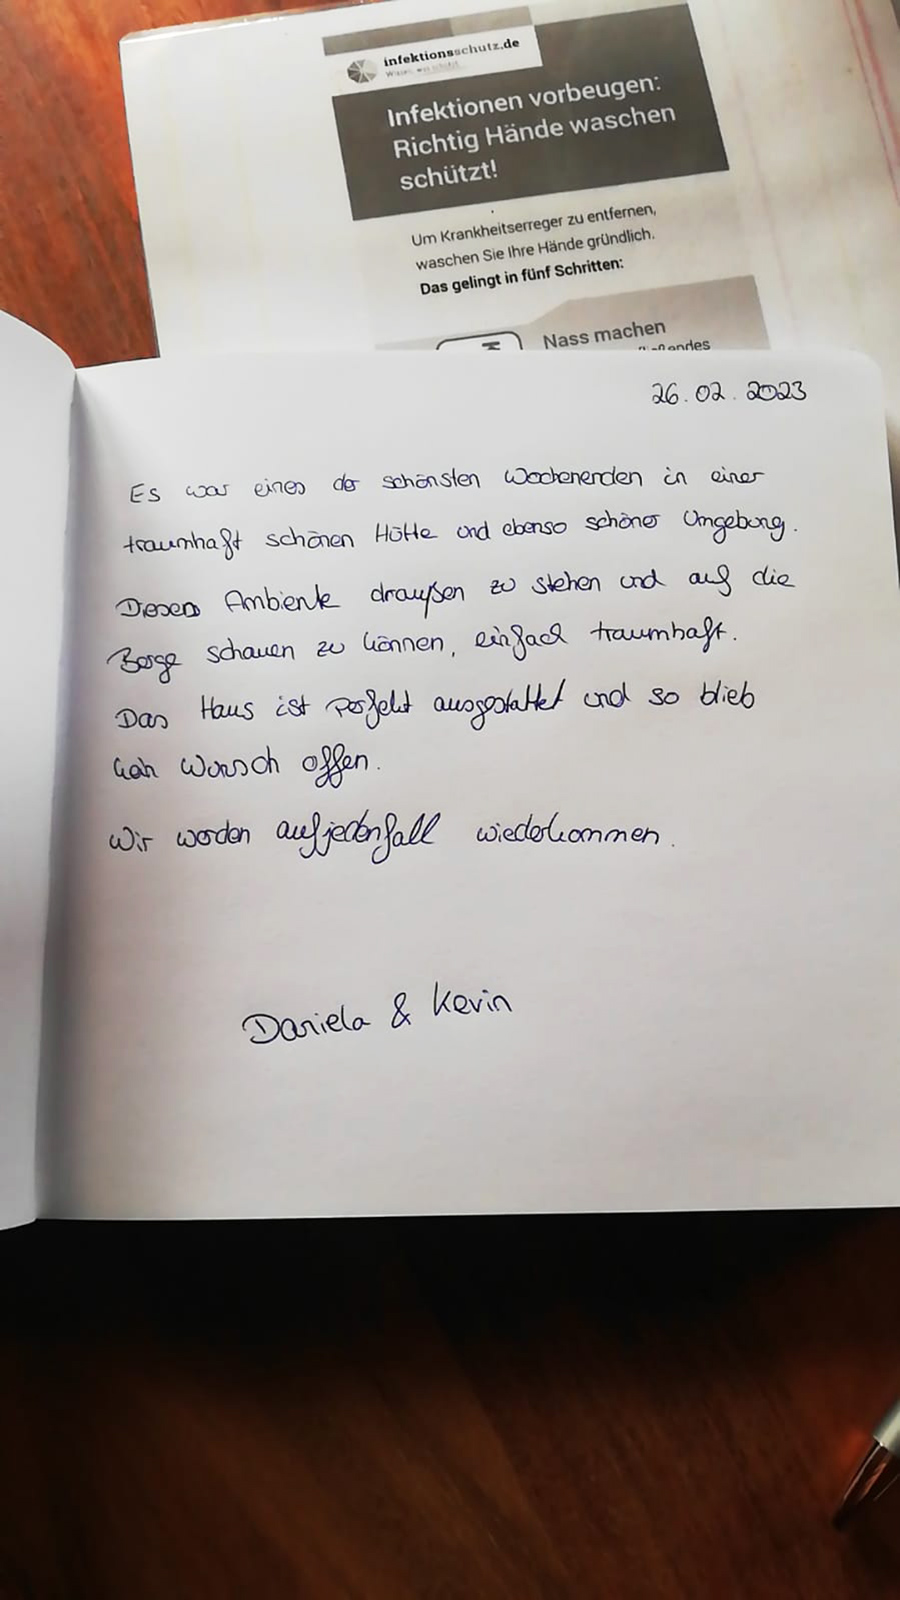 infektionsschutz.de
Wissen, was schützt.
Infektionen vorbeugen:
Richtig Hände waschen
schützt!
Um Krankheitserreger zu entfernen,
waschen Sie Ihre Hände gründlich.
Das gelingt in fünf Schritten:
Nass machen
26.02.2023
Es war eines der schönsten Wochenenden in einer
traumhaft schönen Hütte und ebenso schöner Umgebung.
Dieses Ambiente draußen zu stehen und auf die
Berge schauen zu können, einfach traumhaft.
Das Haus ist perfekt ausgestattet und so blieb
kein Wunsch offen.
Wir werden aufjedenfall wiederkommen.
Daniela & Kevin